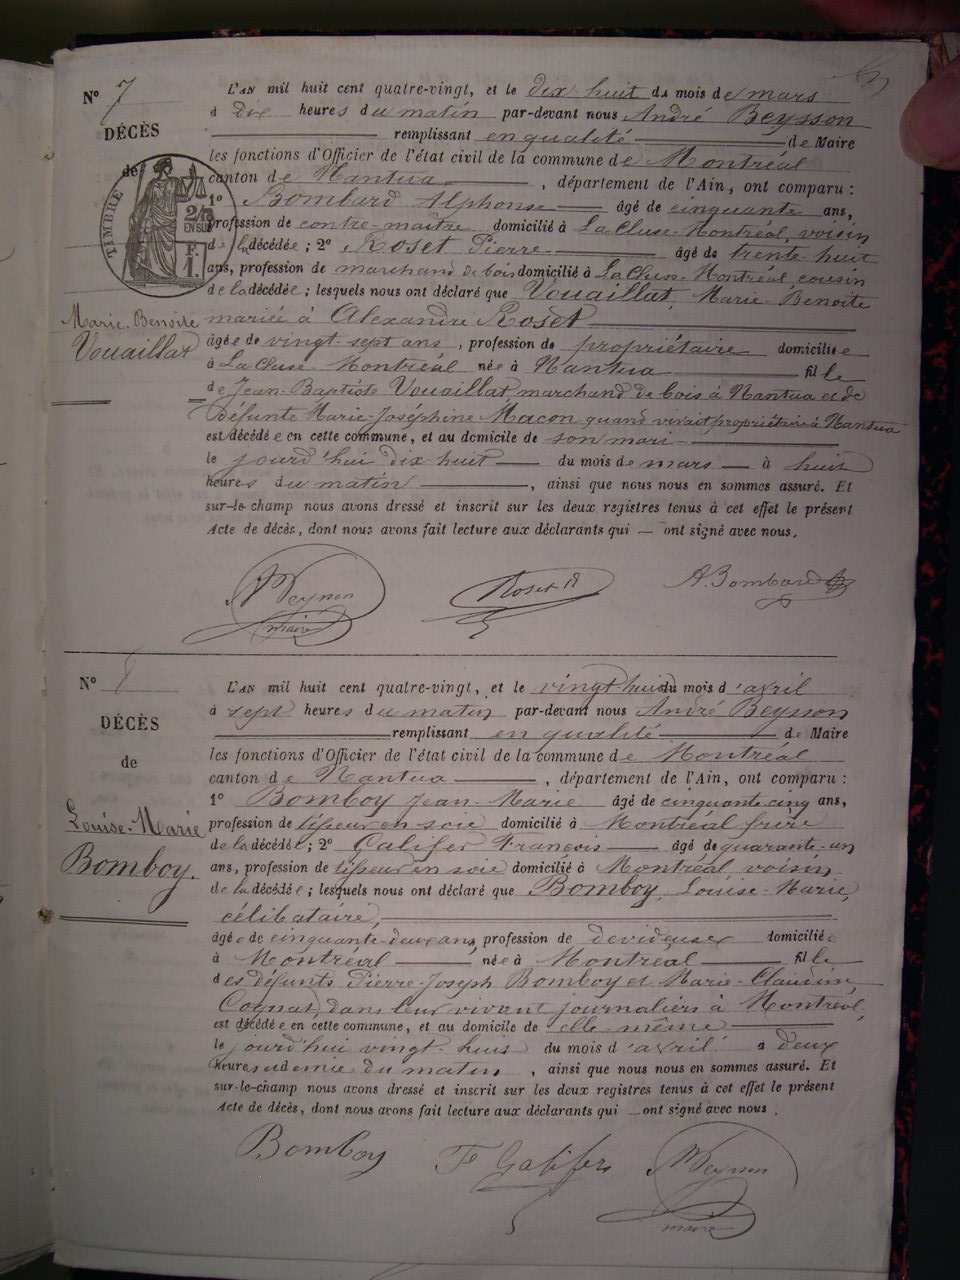 Nº 7
DÉCÈS
de
TIMBRE
2/10
EN SUS
F.
1.
Marie-Benoite
Vouaillat
L'AN mil huit cent quatre-vingt, et le dix huit du mois de mars
à Dix heures du matin par-devant nous André Beysson
remplissant en qualité de Maire
les fonctions d'Officier de l'état civil de la commune de Montréal
canton de Nantua, département de l'Ain, ont comparu :
1º Bombard Alphonse âgé de cinquante ans,
profession de contre-maître domicilié à La Cluse-Montréal, voisin
de la décédée ; 2º Roset Pierre âgé de trente-huit
ans, profession de marchand de bois domicilié à La Cluse-Montréal, cousin
de la décédée ; lesquels nous ont déclaré que Vouaillat, Marie-Benoite
mariée à Alexandre Roset
âgée de vingt-sept ans, profession de propriétaire domiciliée
à La Cluse-Montréal née à Nantua fille
de Jean-Baptiste Vouaillat, marchand de bois à Nantua et de
Défunte Marie-Joséphine Macon quand vivait propriétaire à Nantua
est décédée en cette commune, et au domicile de son mari
le jourd'hui dix huit du mois de mars à huit
heures du matin, ainsi que nous nous en sommes assuré. Et
sur-le-champ nous avons dressé et inscrit sur les deux registres tenus à cet effet le présent
Acte de décès, dont nous avons fait lecture aux déclarants qui — ont signé avec nous.
maire
Roset
A. Bombard
Nº 8
DÉCÈS
de
Louise-Marie
Bomboy.
L'AN mil huit cent quatre-vingt, et le vingt-huit du mois d'avril
à sept heures du matin par-devant nous André Beysson
remplissant en qualité de Maire
les fonctions d'Officier de l'état civil de la commune de Montréal
canton de Nantua, département de l'Ain, ont comparu :
1º Bomboy Jean-Marie âgé de cinquante-cinq ans,
profession de tisseur en soie domicilié à Montréal frère
de la décédée ; 2º Galifer François âgé de quarante-un
ans, profession de tisseur en soie domicilié à Montréal, voisin
de la décédée ; lesquels nous ont déclaré que Bomboy, Louise-Marie,
célibataire,
âgée de cinquante-deux ans, profession de devideuse domiciliée
à Montréal née à Montréal fille
des défunts Pierre-Joseph Bomboy et Marie-Claudine
Cognat, dans leur vivant journaliers à Montréal,
est décédée en cette commune, et au domicile de elle-même
le jourd'hui vingt-huit du mois d'avril à deux
heures et demie du matin, ainsi que nous nous en sommes assuré. Et
sur-le-champ nous avons dressé et inscrit sur les deux registres tenus à cet effet le présent
Acte de décès, dont nous avons fait lecture aux déclarants qui — ont signé avec nous.
Bomboy
F Galifer
maire